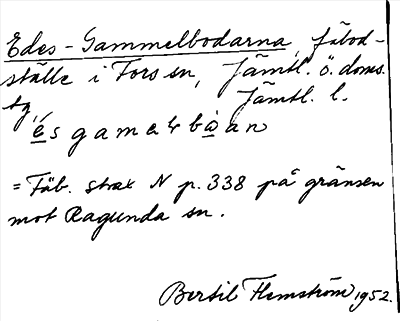 Edes-Gammelbodarna, fäbod-
ställe i Fors sn, Jämtl. ö. doms.
tg, Jämtl. l.
és gamalbòan
= Fäb. strax N p. 338 på gränsen
mot Ragunda sn.
Bertil Flemström 1952.